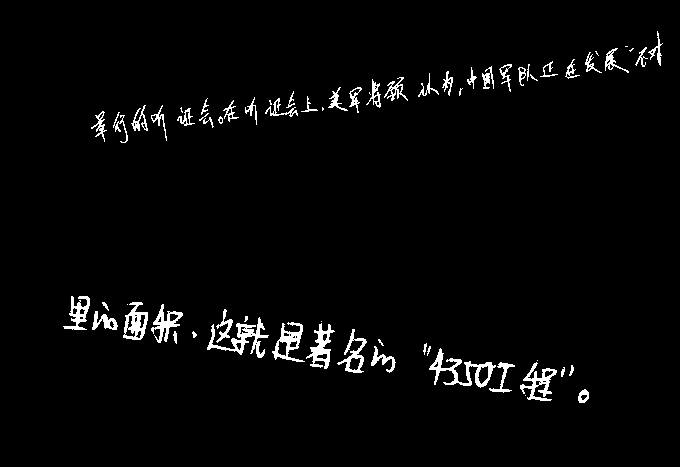 举行的听证会。在听证会上,美军将领认为,中国军队正在发展“不对
里的面积,这就是著名的“4350工程”。